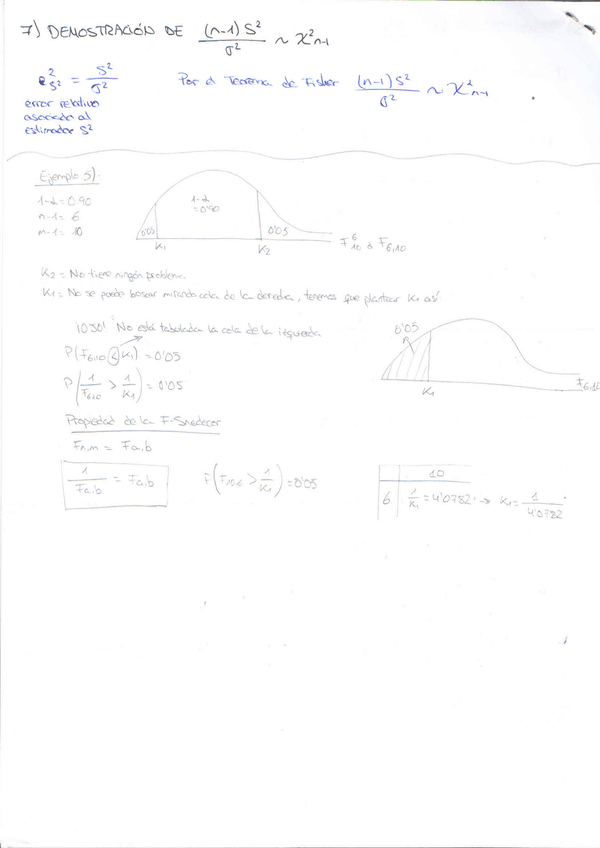 7) DEMOSTRACIÓN DE (n-1)S²/σ² ~ χ²n-1
e²s² = S²/σ² Por el Teorema de Fisher (n-1)S²/σ² ~ χ²n-1
error relativo
asociado al
estimador S²
Ejemplo 5)
1-α=0.90
n-1= 6
m-1= 10
1-α
=0'90
0'05
0'05
K1
K2
F 6 10 ó F6,10
K2 = No tiene ningún problema.
K1 = No se puede buscar mirando cola de la derecha, tenemos que plantear K1 así:
¡OJO! No está tabulada la cola de la izquierda
P(F6,10 < K1) = 0'05
P(1/F6,10 > 1/K1) = 0'05
0'05
K1
F6,10
Propiedad de la F-Snedecor
Fn,m = Fa,b
1/Fa,b = Fa,b
P(F10,6 > 1/K1) = 0'05
10
6 1/K1 = 4'0782 → K1 = 1/4'0782